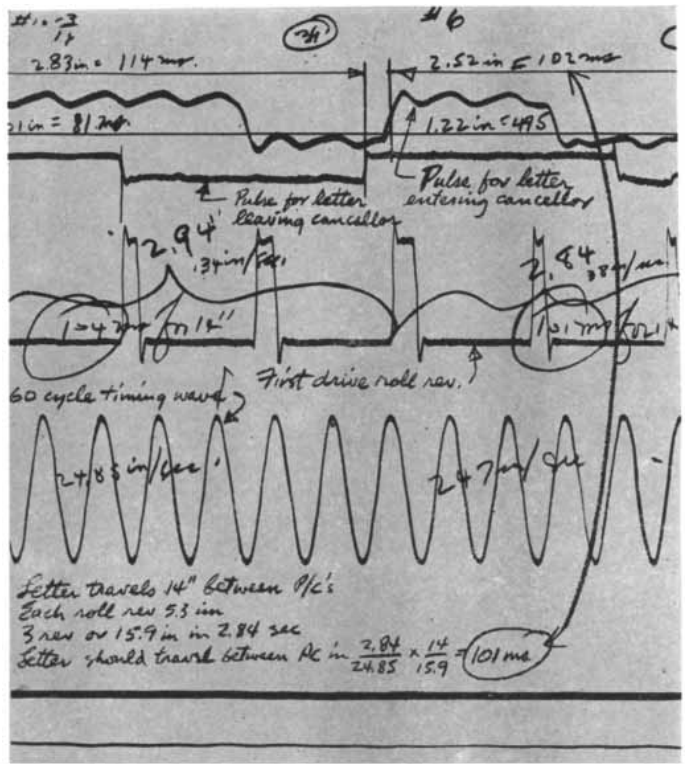 #6
2.83 in = 114 ms.
2.52 in = 102 ms
in = 81 ms.
1.22 in = 495
Pulse for letter
leaving cancellor
Pulse for letter
entering cancellor
2.94"
.34 in/sec.
2.84
104 ms for 14"
101 ms for 14
First drive roll rev.
60 cycle timing wave
24.85 in/sec.
247 in/sec
Letter travels 14" between P/c's
Each roll rev 5.3 in
3 rev or 15.9 in in 2.84 sec
Letter should travel between PC in 2.84/24.85 x 14/15.9 = 101 ms